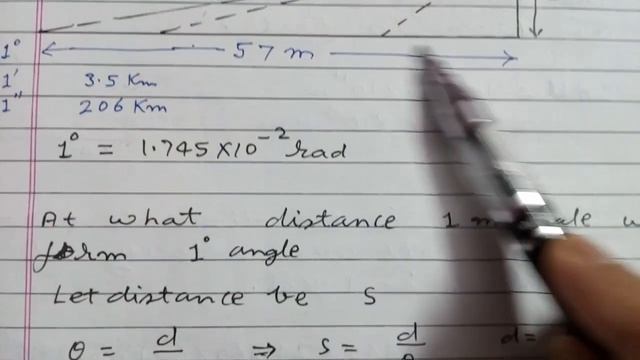 1° 57 m
1' 3.5 Km
1" 206 Km
1° = 1.745 × 10⁻² rad
At what distance 1 m
form 1° angle
Let distance be S
θ = d ⇒ s = d d=